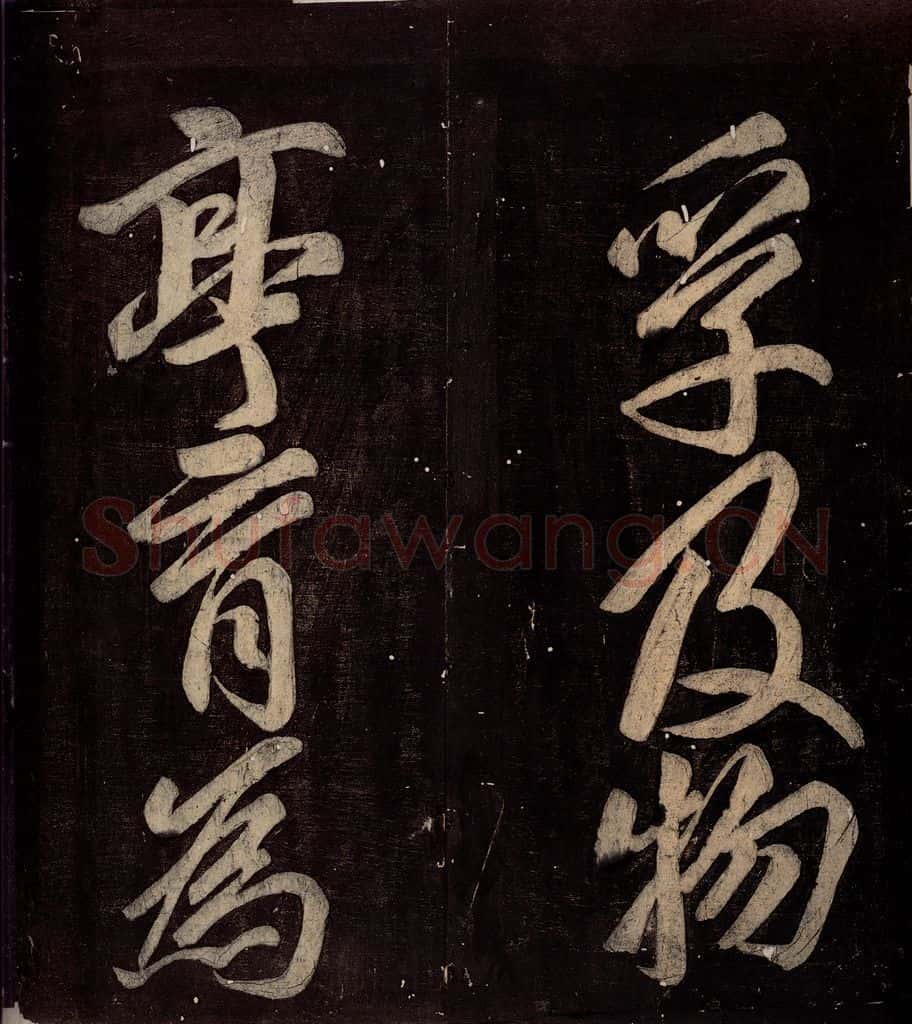 孚及物
亭育為
Shufawang.CN